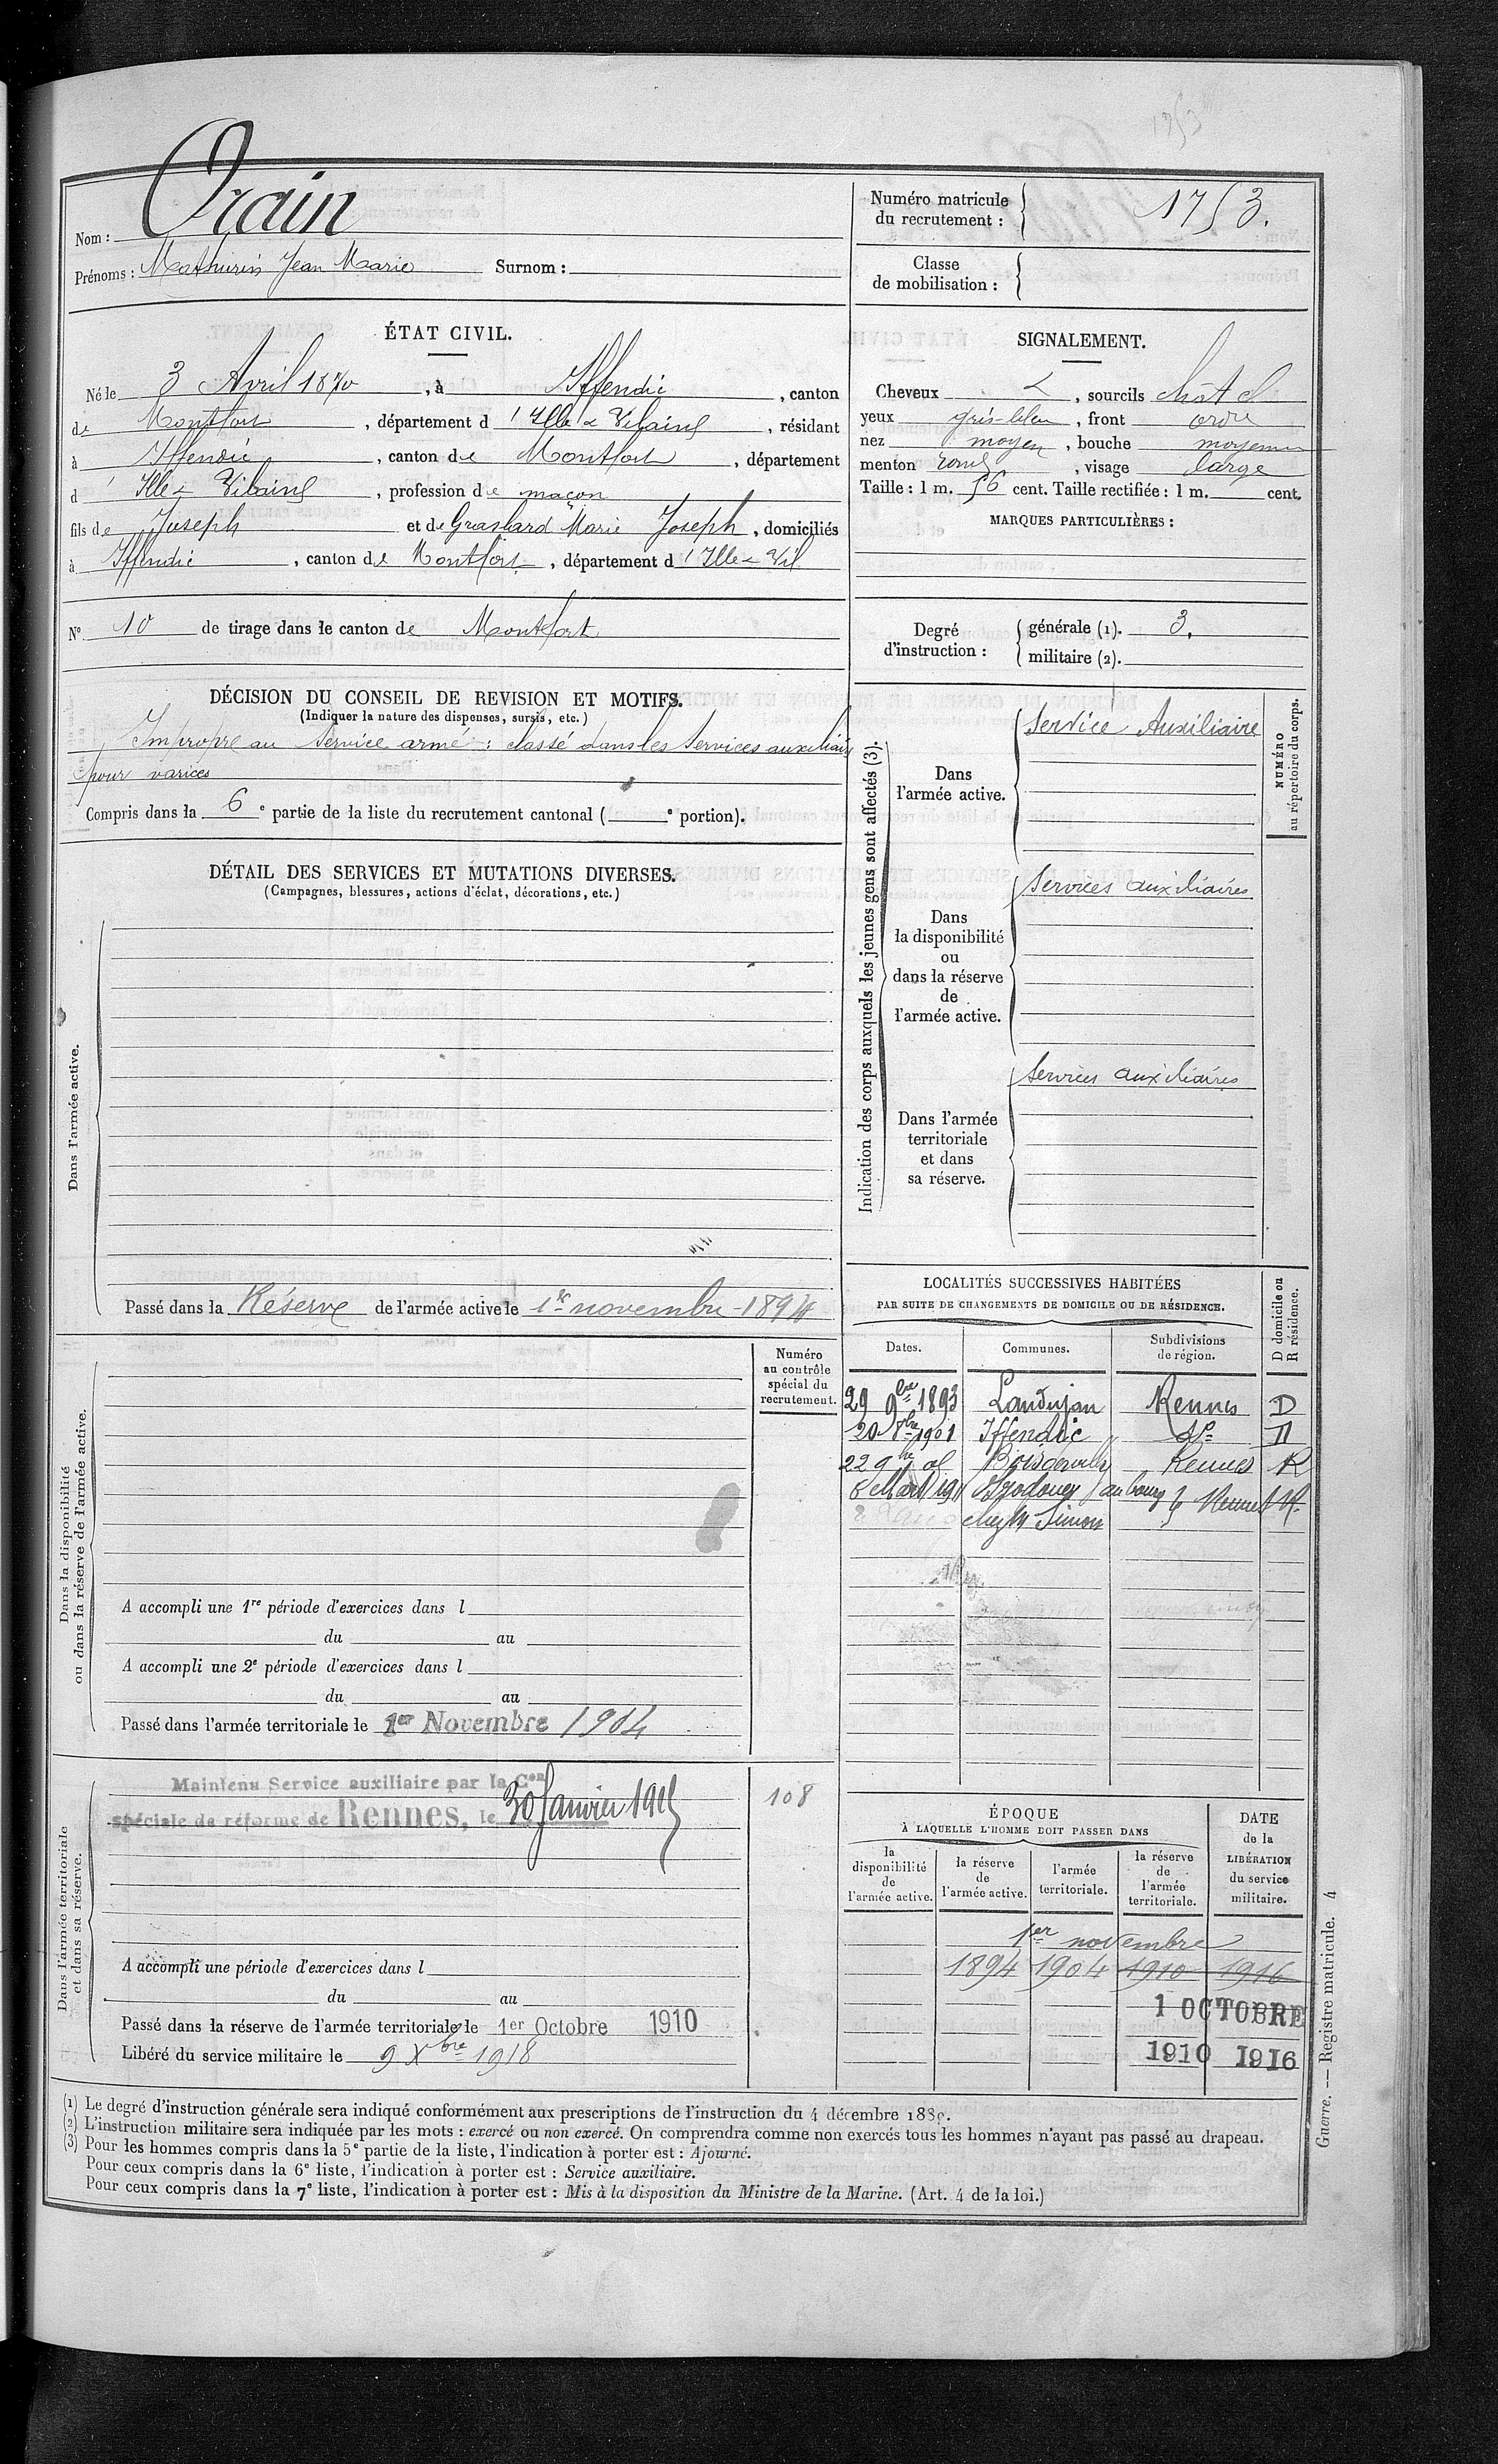 Nom : Orain
Prénoms : Mathurin Jean Marie Surnom :
Numéro matricule du recrutement : 1753.
Classe de mobilisation :
ÉTAT CIVIL.
Né le 3 Avril 1870, à Iffendic, canton
de Montfort, département d'Ille & Vilaine, résidant
à Iffendic, canton de Montfort, département
d'Ille & Vilaine, profession de maçon
fils de Joseph et de Grasland Marie Joseph, domiciliés
à Iffendic, canton de Montfort, département d'Ille & Vil.
N° 10 de tirage dans le canton de Montfort
SIGNALEMENT.
Cheveux &, sourcils chât cl
yeux gris-bleu, front ordre
nez moyen, bouche moyenne
menton rond, visage large
Taille : 1 m. 56 cent. Taille rectifiée : 1 m. cent.
MARQUES PARTICULIÈRES :
Degré d'instruction : générale (1). 3.
militaire (2).
DÉCISION DU CONSEIL DE REVISION ET MOTIFS.
(Indiquer la nature des dispenses, sursis, etc.)
Impropre au Service armé : classé dans les Services auxiliaires
pour varices
Compris dans la 6e partie de la liste du recrutement cantonal ( e portion).
DÉTAIL DES SERVICES ET MUTATIONS DIVERSES.
(Campagnes, blessures, actions d'éclat, décorations, etc.)
Dans l'armée active.
Passé dans la Réserve de l'armée active le 1er novembre 1894
Indication des corps auxquels les jeunes gens sont affectés (3).
NUMÉRO au répertoire du corps.
Dans l'armée active.
Service Auxiliaire
Dans la disponibilité ou dans la réserve de l'armée active.
Services auxiliaires
Dans l'armée territoriale et dans sa réserve.
Services auxiliaires
LOCALITÉS SUCCESSIVES HABITÉES
PAR SUITE DE CHANGEMENTS DE DOMICILE OU DE RÉSIDENCE.
Dates. Communes. Subdivisions de région. D domicile ou R résidence.
29 9bre 1893 Landujan Rennes D
20 8bre 1901 Iffendic do D
22 9bre 08 Boisgervilly Rennes R
Mars 1911 au bourg Rennes R.
chez M Simon
Dans la disponibilité ou dans la réserve de l'armée active.
Numéro au contrôle spécial du recrutement.
A accompli une 1re période d'exercices dans l
du au
A accompli une 2e période d'exercices dans l
du au
Passé dans l'armée territoriale le 1er Novembre 1904
Dans l'armée territoriale et dans sa réserve.
Maintenu Service auxiliaire par la Con
spéciale de réforme de Rennes, le 30 Janvier 1915
108
A accompli une période d'exercices dans l
du au
Passé dans la réserve de l'armée territoriale le 1er Octobre 1910
Libéré du service militaire le 9 Xbre 1918
ÉPOQUE
À LAQUELLE L'HOMME DOIT PASSER DANS
la disponibilité de l'armée active.
la réserve de l'armée active.
l'armée territoriale.
la réserve de l'armée territoriale.
DATE de la LIBÉRATION du service militaire.
1er novembre
1894 1904 1910 1916
1 OCTOBRE
1910 1916
(1) Le degré d'instruction générale sera indiqué conformément aux prescriptions de l'instruction du 4 décembre 1889.
(2) L'instruction militaire sera indiquée par les mots : exercé ou non exercé. On comprendra comme non exercés tous les hommes n'ayant pas passé au drapeau.
(3) Pour les hommes compris dans la 5e partie de la liste, l'indication à porter est : Ajourné.
Pour ceux compris dans la 6e liste, l'indication à porter est : Service auxiliaire.
Pour ceux compris dans la 7e liste, l'indication à porter est : Mis à la disposition du Ministre de la Marine. (Art. 4 de la loi.)
Guerre. — Registre matricule. 4